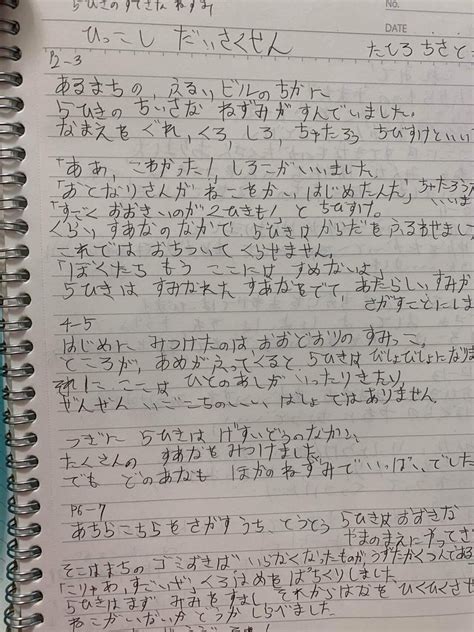 5ひきの すてきな ねずみ
No.
DATE
ひっこし だいさくせん
たしろ ちさと
P2-3
あるまちの、ふるい ビルの ちかに
5ひきの ちいさな ねずみが すんでいました。
なまえを ぐれ、くろ、しろ ちゃたろう ちびすけといい
「ああ、こわかった!」しろこがいいました。
「おとなりさんが ねこをかいはじめたんだ」ちゃたろうが いいま
「すごく おおきいのが2ひきも!」と ちびすけ。
くらい すあなのなかで 5ひきは からだを ふるわせまし
これでは おちついて くらせません。
「ぼくたち もう ここには すめないよ」
5ひきは すみなれた すあなをでて あたらしい すみか
さがすことにしま
4-5
はじめに みつけたのは おおどおりの すみっこ。
ところが、あめが ふってくると 5ひきは びしょびしょになりま
それに ここは ひとのあしが いったりきたり、
ぜんぜん いごこちのいい ばしょではありません。
つぎに 5ひきは げすいどうのなかに、
たくさんの すあなを みつけました。
でも どのあなも ほかのねずみで いっぱいでした
P6-7
あちらこちらを さがすうち、とうとう 5ひきは おおきな
やまのまえに やってき
そこはまちの ゴミおきば いらなくなったものが うずたかく つんである
「こりゃあ、すごいぜ」くろはめを ぱちくりしました。
5ひきは まず みみをすまし それからはなを ひくひくさせ
ねこがいないか どうか しらべました。